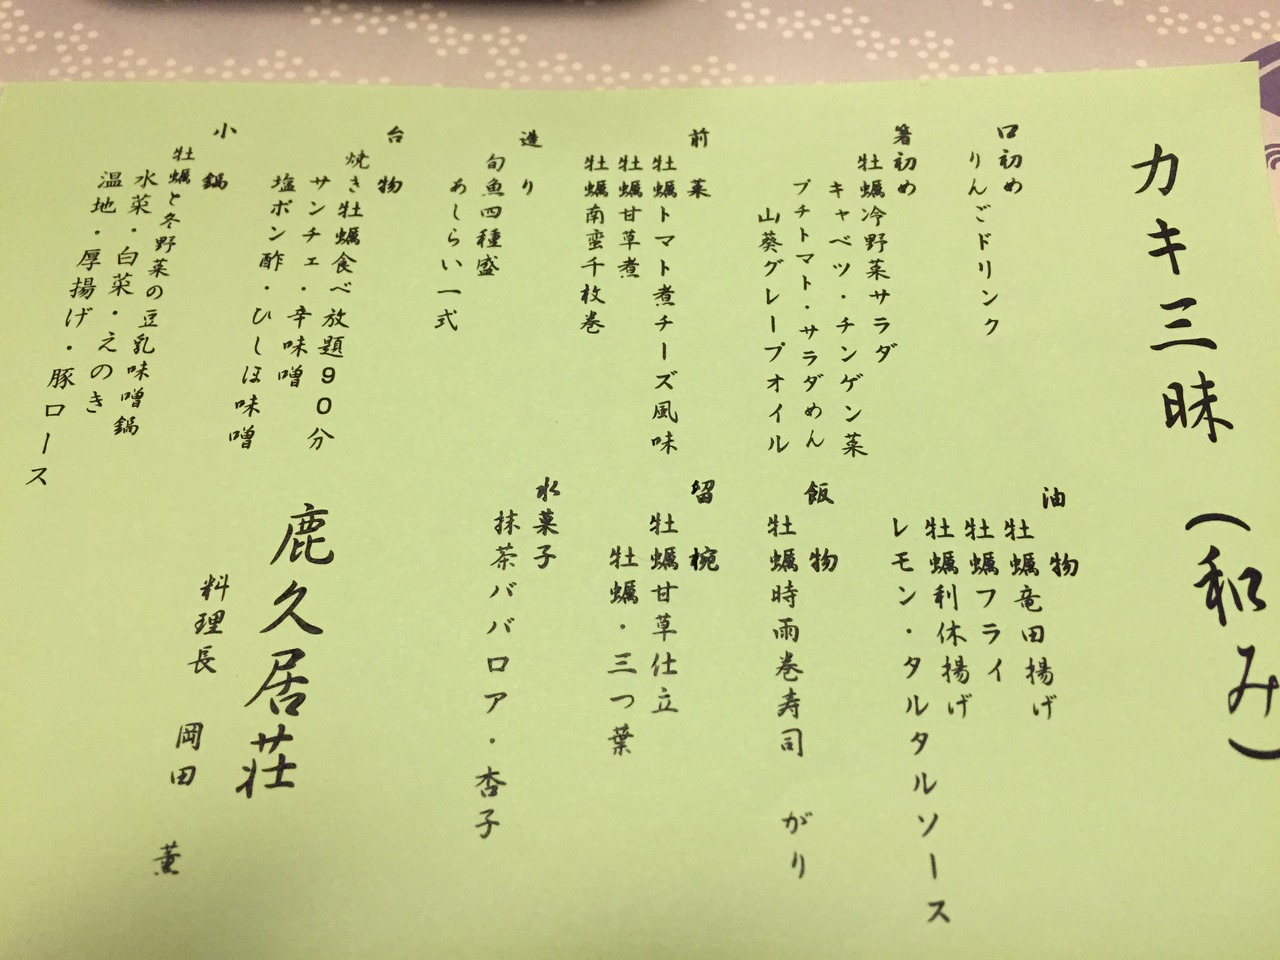 カキ三昧（和み）
口初め
りんごドリンク
箸初め
牡蠣冷野菜サラダ
キャベツ・チンゲン菜
プチトマト・サラダめん
山葵グレープオイル
前菜
牡蠣トマト煮チーズ風味
牡蠣甘草煮
牡蠣南蛮千枚巻
造り
旬魚四種盛
あしらい一式
台物
焼き牡蠣食べ放題90分
サンチェ・辛味噌
塩ポン酢・ひしほ味噌
小鍋
牡蠣と冬野菜の豆乳味噌鍋
水菜・白菜・えのき
温地・厚揚げ・豚ロース
油物
牡蠣竜田揚げ
牡蠣フライ
牡蠣利休揚げ
レモン・タルタルソース
飯物
牡蠣時雨巻寿司 がり
留椀
牡蠣甘草仕立
牡蠣・三つ葉
水菓子
抹茶ババロア・杏子
鹿久居荘
料理長 岡田 薫